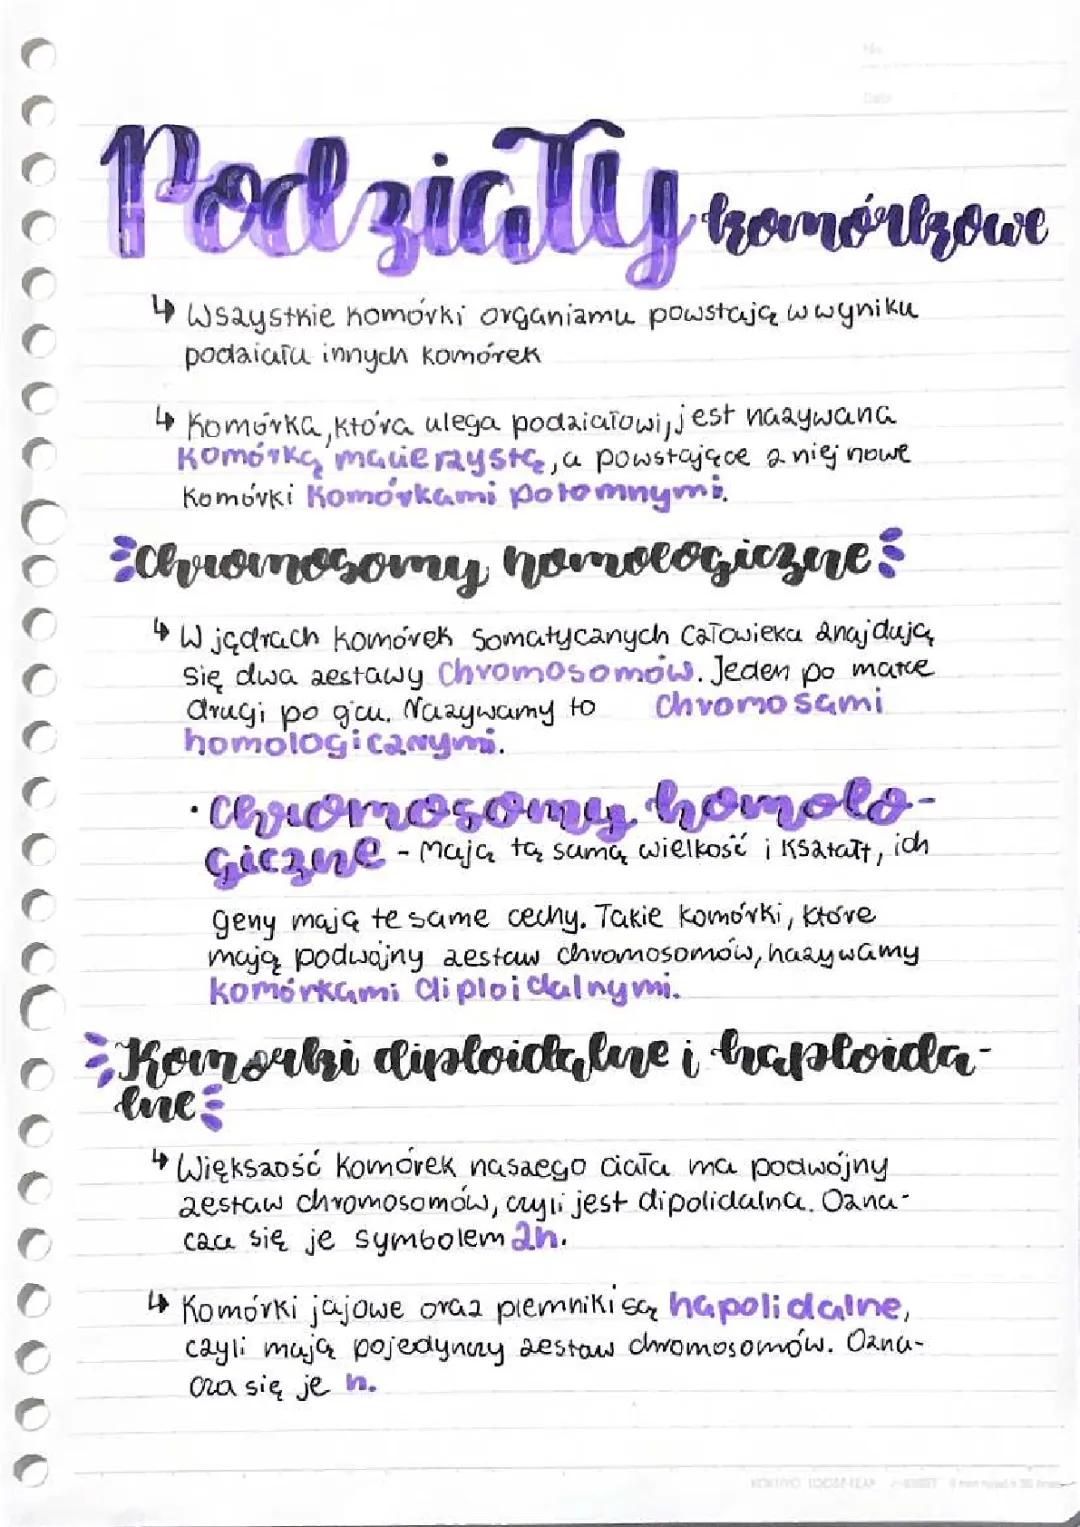 No.
Date
Podziały komórkowe
↳ Wszystkie komórki organizmu powstają w wyniku
podziału innych komórek
↳ Komórka, która ulega podziałowi, jest nazywana
Komórką macierzystą, a powstające z niej nowe
komórki Komórkami potomnymi.
Chromosomy homologiczne
↳ W jądrach komórek somatycznych człowieka znajdują
się dwa zestawy Chromosomów. Jeden po matce
drugi po ojcu. Nazywamy to Chromosami
homologicznymi.
· Chromosomy homolo-
giczne - Mają tą samą wielkość i kształt, ich
geny mają te same cechy. Takie komórki, które
mają podwójny zestaw chromosomów, nazywamy
komórkami diploidalnymi.
Komórki diploidalne i haploida-
lne
↳ Większość komórek naszego ciała ma podwójny
zestaw chromosomów, czyli jest dipolidalna. Ozna-
cza się je symbolem 2n.
↳ Komórki jajowe oraz plemniki są hapolidalne,
czyli mają pojedynczy zestaw chromosomów. Ozna-
cza się je n.